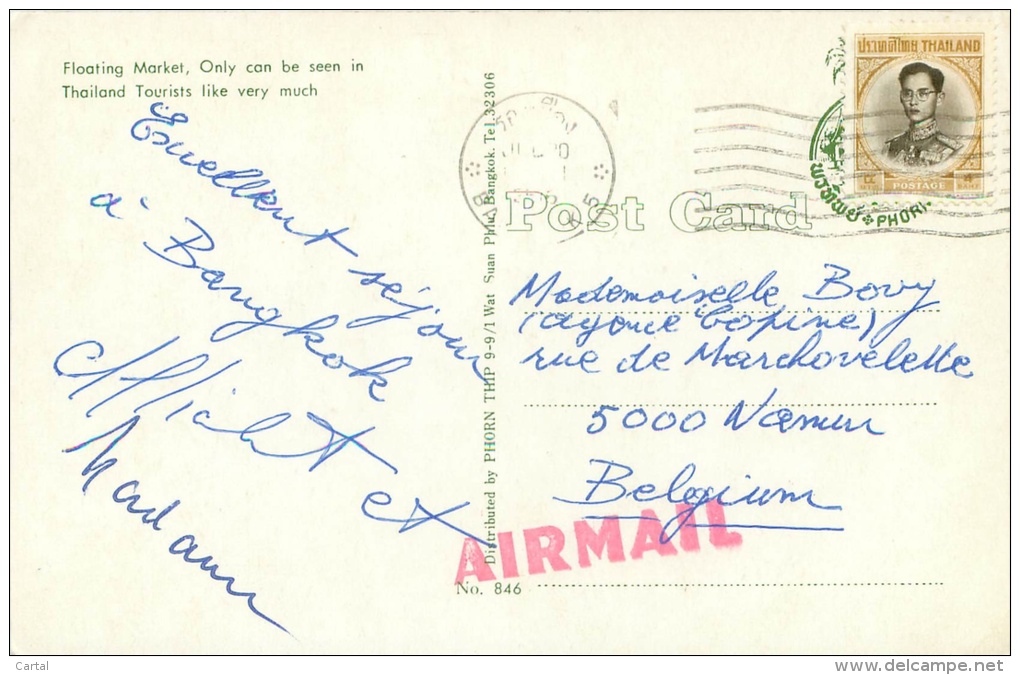 Floating Market, Only can be seen in
Thailand Tourists like very much
Excellent séjour
à Bangkok
et
Madame
Distributed by PHORN THIP 9-9/1 Wat Suan Phlu, Bangkok. Tel.32306
ประเทศไทย THAILAND
POSTAGE
พรทิพย์ PHORN
JUL 20
Post Card
Mademoiselle Bovy
(agence Copine)
rue de Marchovelette
5000 Namur
Belgium
AIRMAIL
No. 846
Cartal
www.delcampe.net